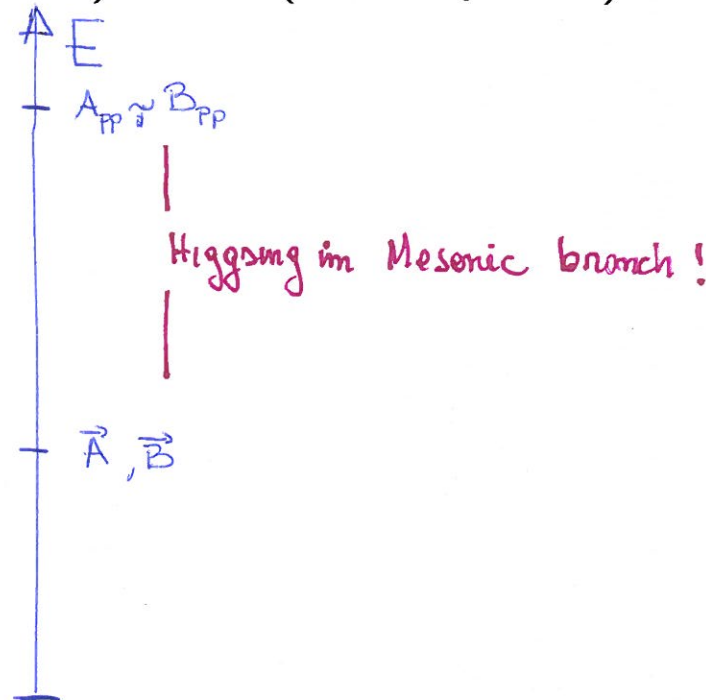 E
A_pp ~ B_pp
Higgsing in Mesonic branch !
A⃗ , B⃗